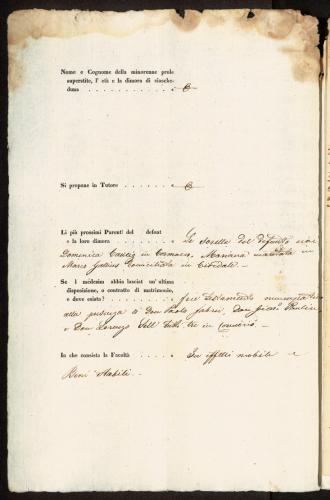 Nome e Cognome della minorenne prole
superstite, l' età e la dimora di ciasche-
duna . . . . . . . . . .
Si propone in Tutore . . . . . .
Li più prossimi Parenti del defunt
e la loro dimora . . . . . . Le sorelle del defunto cioè
Domenica in Cormons, Marianna maritata in
Marco domiciliata in Cividale.
Se l medesim abbia lasciat un' ultima
disposizione, o contratto di matrimonio,
e dove esista? . . . . . . fece testamento nuncupativo
alla presenza di Don Paolo
e Don Lorenzo tutti tre in
In che consista la Facoltà . . . . In effetti mobili e
Beni stabili.